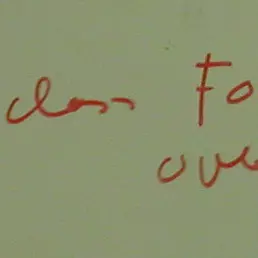 class Fo
ove